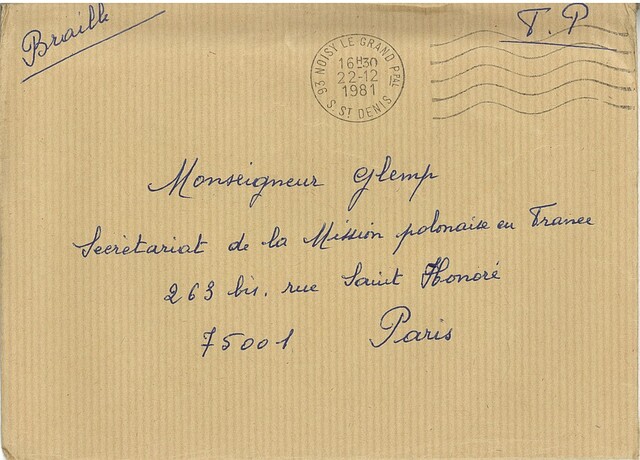 Braille
T.P
93 NOISY LE GRAND PPAL
16H30
22-12
1981
S. ST DENIS
Monseigneur Glemp
Secrétariat de la Mission polonaise en France
263 bis, rue Saint Honoré
75001 Paris